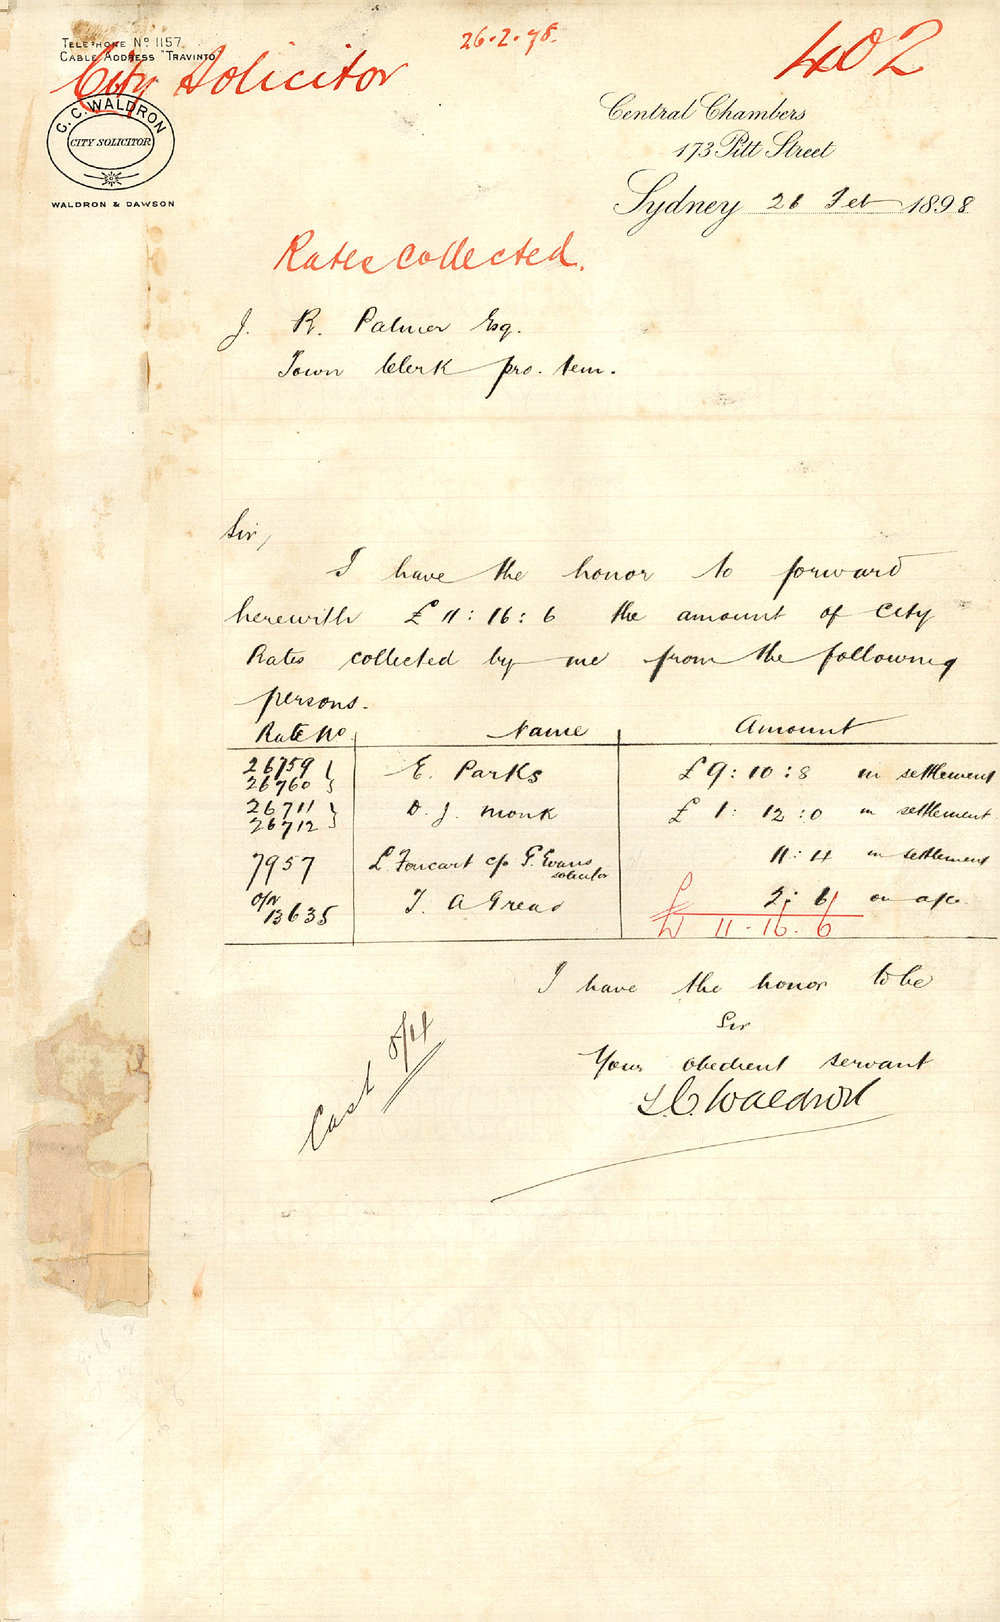 TELEPHONE Nº 1157
CABLE ADDRESS "TRAVINTO"
City Solicitor
26.2.98.
402
C. C. WALDRON
CITY SOLICITOR
WALDRON & DAWSON
Central Chambers
173 Pitt Street
Sydney 26 Feb 1898
Rates collected.
J. R. Palmer Esq.
Town Clerk pro. tem.
Sir,
I have the honor to forward
herewith £11:16:6 the amount of City
Rates collected by me from the following
persons.
Rate No Name Amount
26759 } E. Parks £9:10:8 in settlement
26760
26711 } D. J. Monk £1:12:0 in settlement
26712
7957 L. Foucart c/o G. Evans solicitor 11:4 in settlement
O/N 13635 T. A. 2:6 on a/c.
£ 11.16.6
I have the honor to be
Sir
Your obedient servant
C. Waldron
Cast